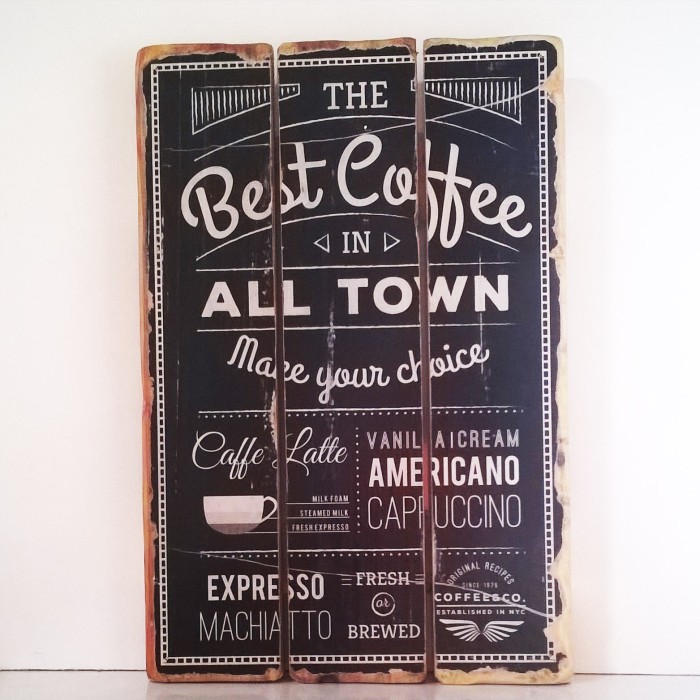 THE
Best Coffee
IN
ALL TOWN
Make your choice
Caffe Latte
MILK FOAM
STEAMED MILK
FRESH EXPRESSO
VANILLA ICREAM
AMERICANO
CAPPUCCINO
EXPRESSO
MACHIATTO
FRESH
or
BREWED
ORIGINAL RECIPES
SINCE 1976
COFFEE&CO.
ESTABLISHED IN NYC